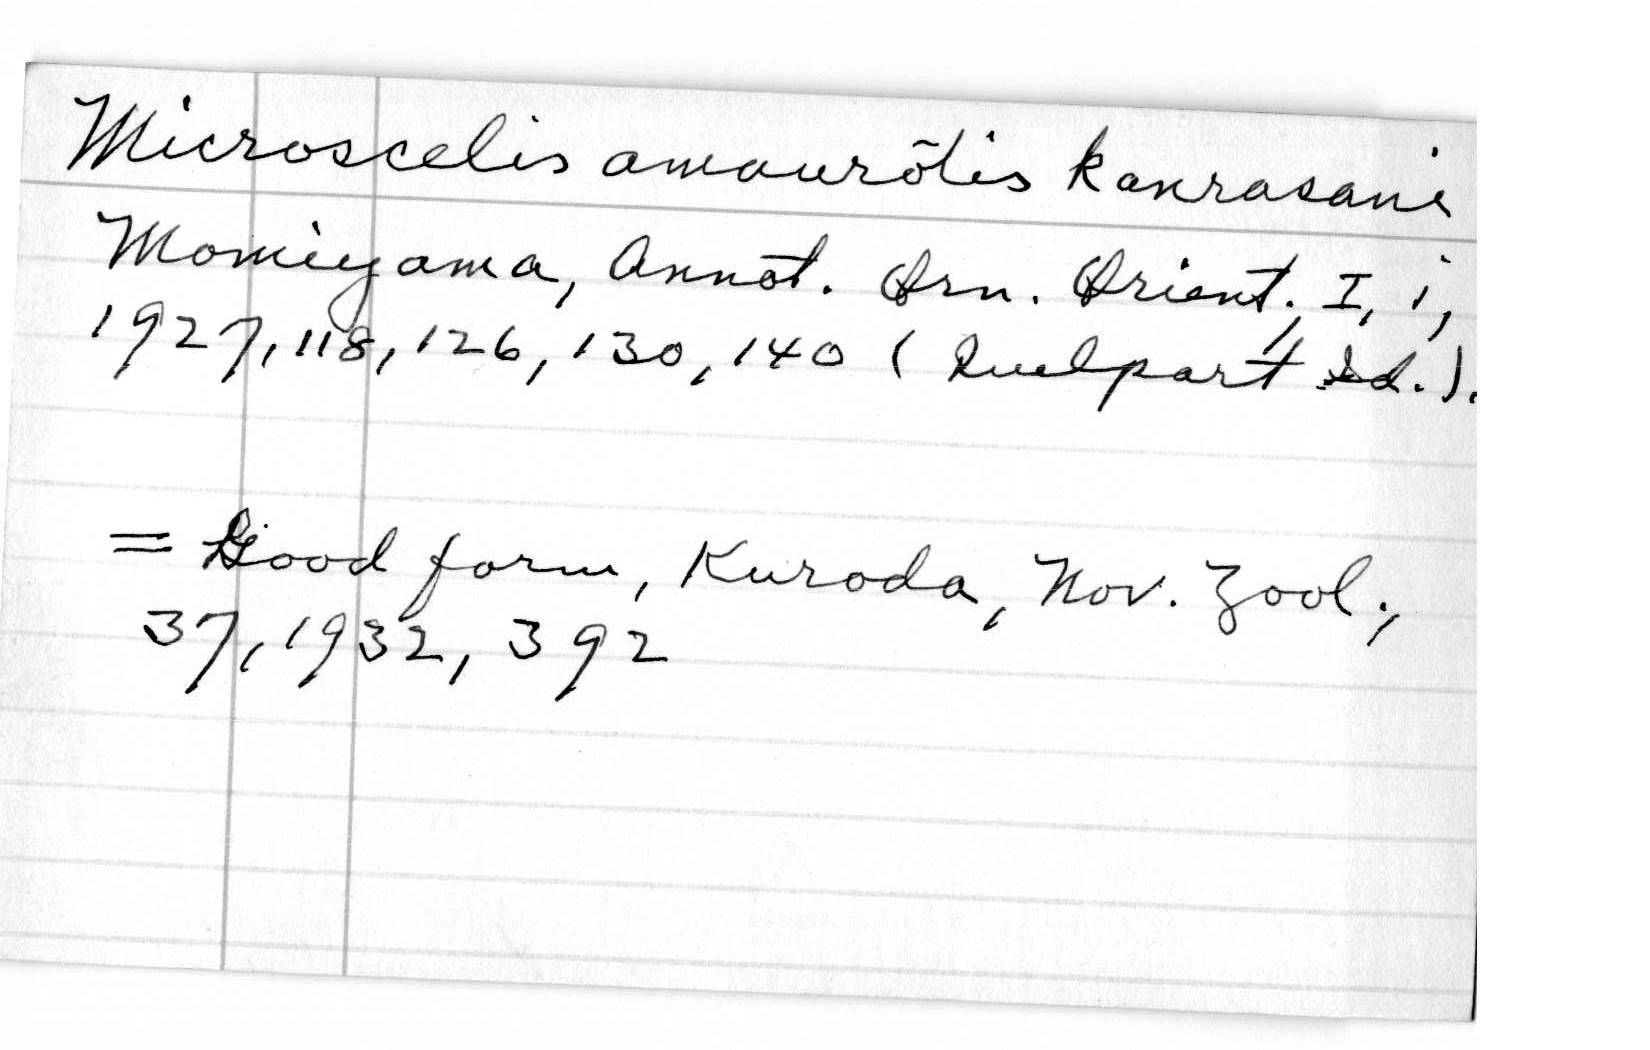 Microscelis amaurōtis kanrasani
Momiyama, Annot. Orn. Orient., I, i,
1927, 118, 126, 130, 140 (Quelpart Id.).
= Good form, Kuroda, Nov. Zool.,
37, 1932, 392